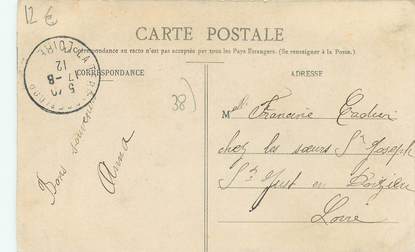 12 €
CARTE POSTALE
La Correspondance au recto n'est pas acceptée par tous les Pays Etrangers. (Se renseigner à la Poste.)
CORRESPONDANCE
ADRESSE
38)
5
17-8
12
LOIRE
Bons souvenirs
Anna
Mlle Francine
chez les sœurs St Joseph
St Just en
Loire